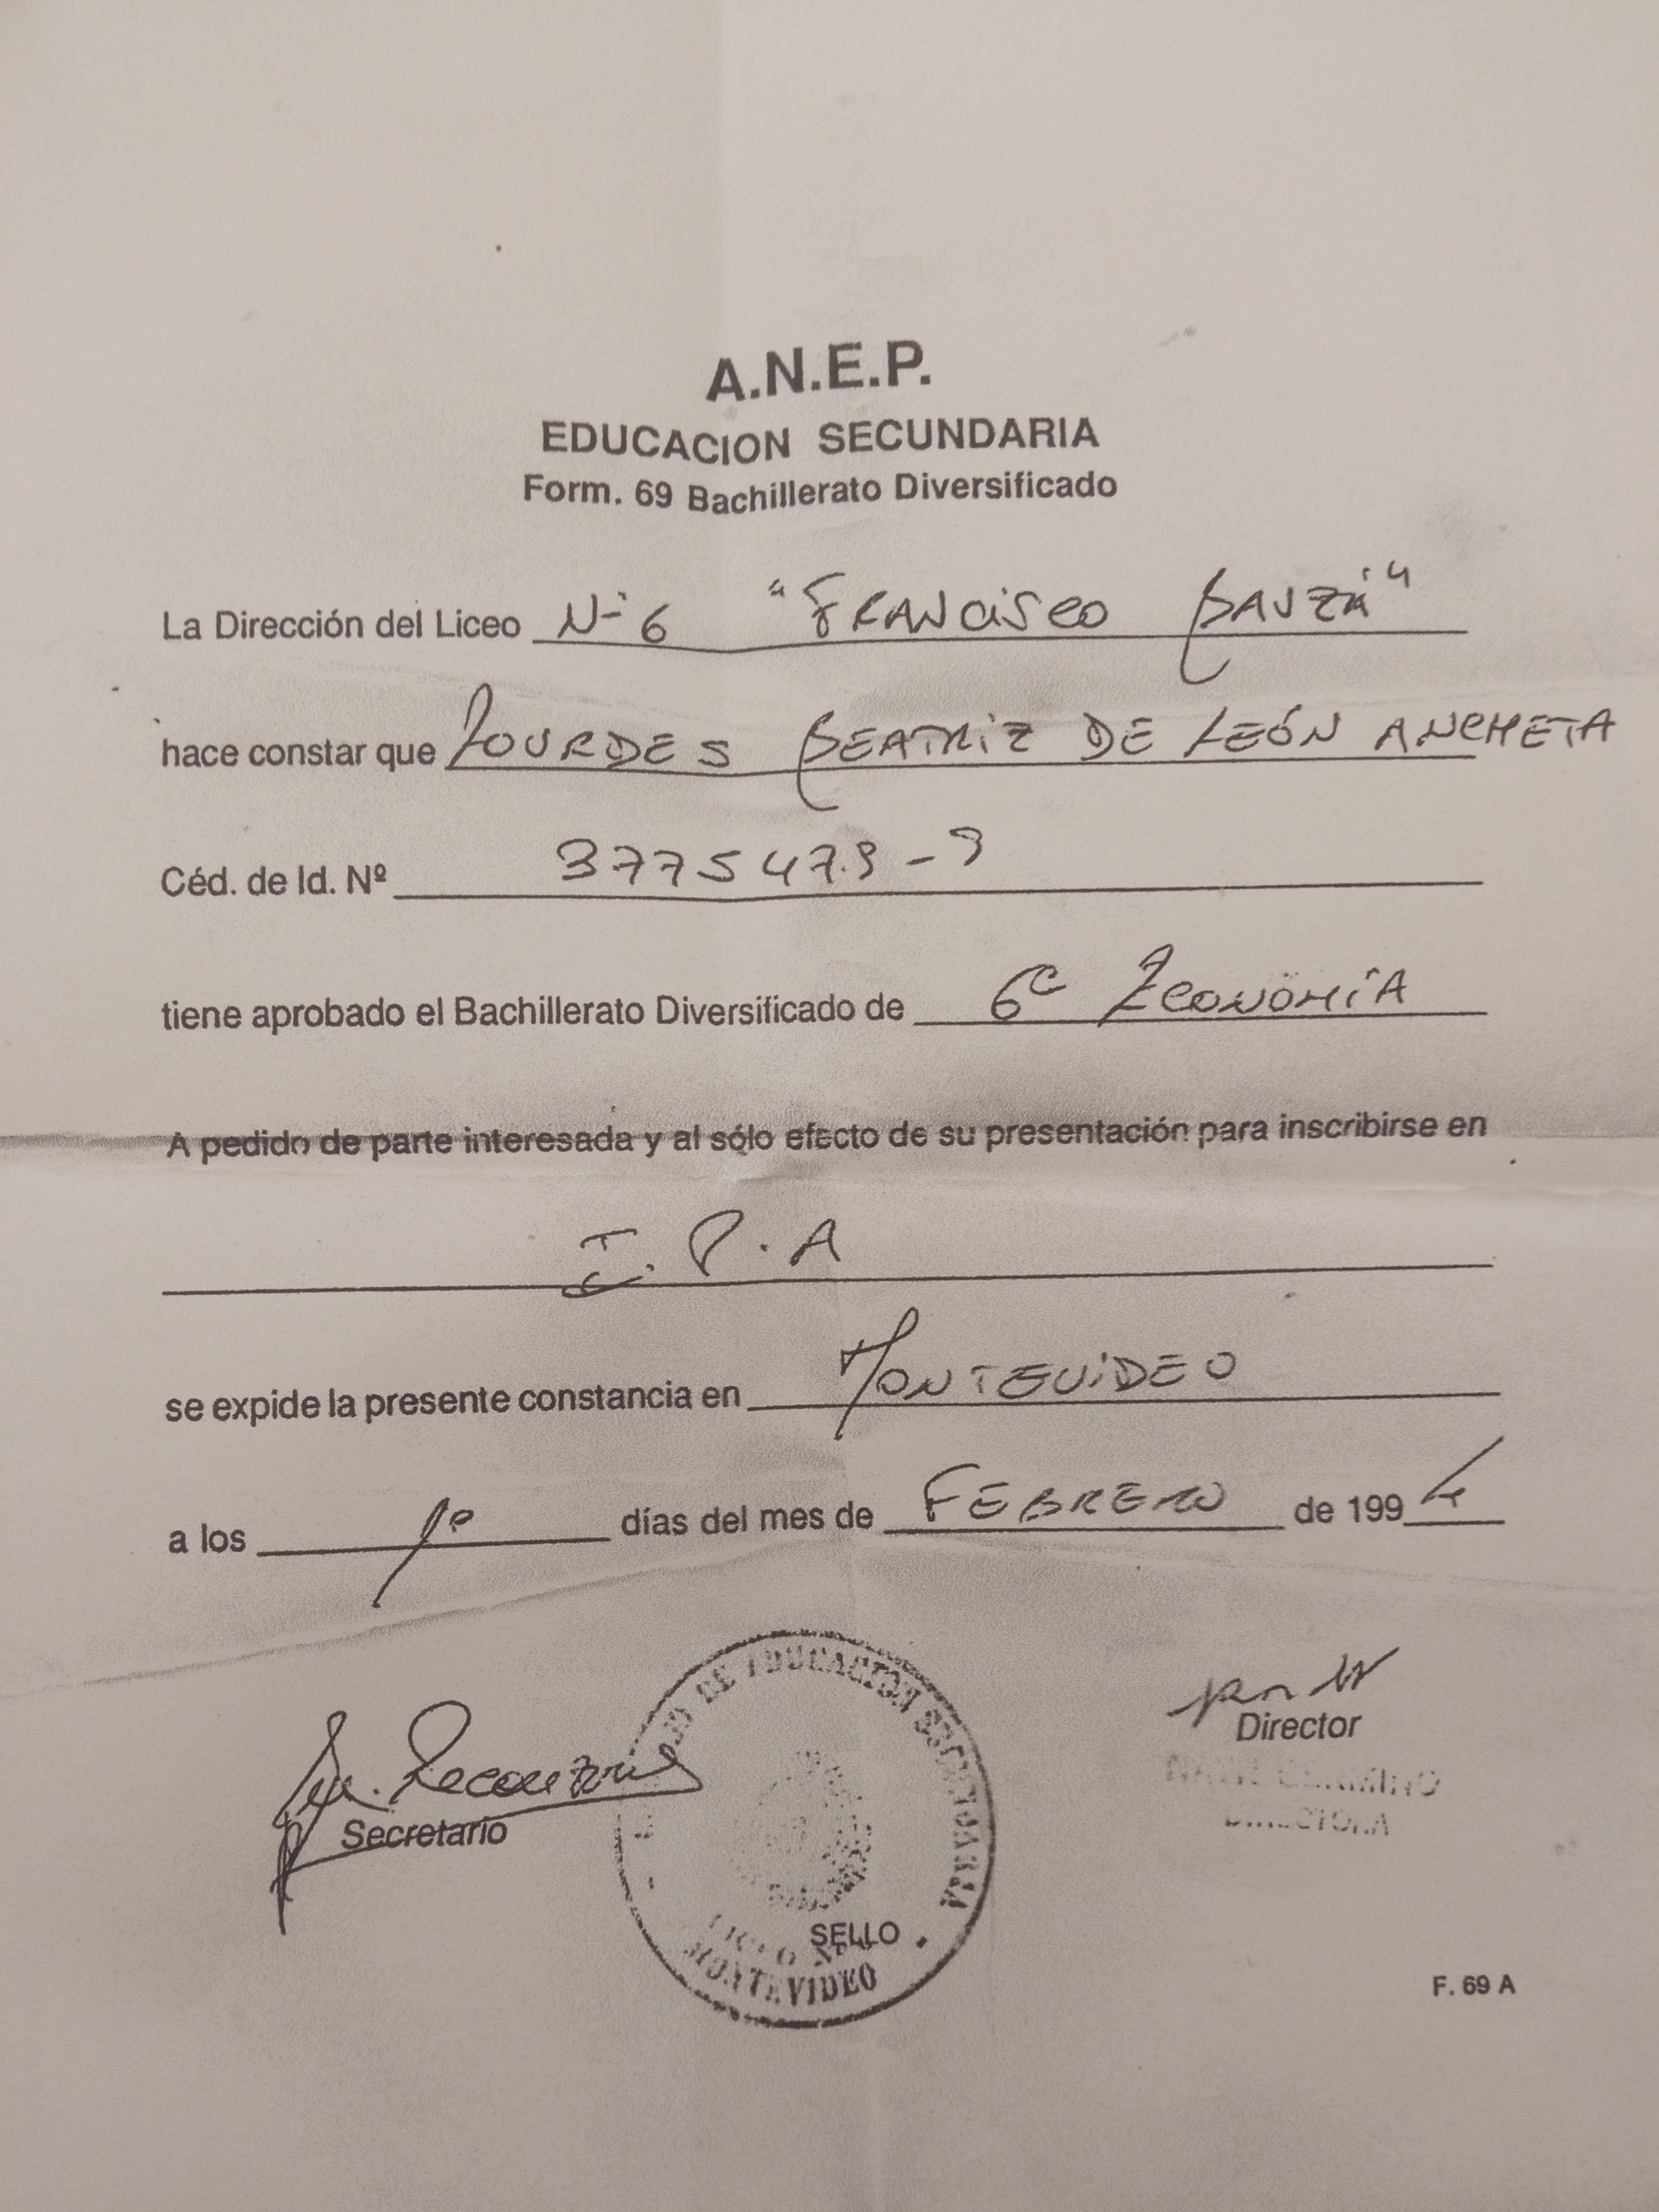 A.N.E.P.
EDUCACION SECUNDARIA
Form. 69 Bachillerato Diversificado
La Dirección del Liceo N° 6 "FRANCISCO BAUZÁ"
hace constar que LOURDES BEATRIZ DE LEÓN ANCHETA
Céd. de Id. Nº 377547.9-9
tiene aprobado el Bachillerato Diversificado de 6º ECONOMÍA
A pedido de parte interesada y al sólo efecto de su presentación para inscribirse en
I.P.A
se expide la presente constancia en MONTEVIDEO
a los 1º días del mes de FEBRERO de 1994
Director
Secretario
DIRECTORA
DE EDUCACION SECUNDARIA
SELLO
LICEO Nº
MONTEVIDEO
F. 69 A